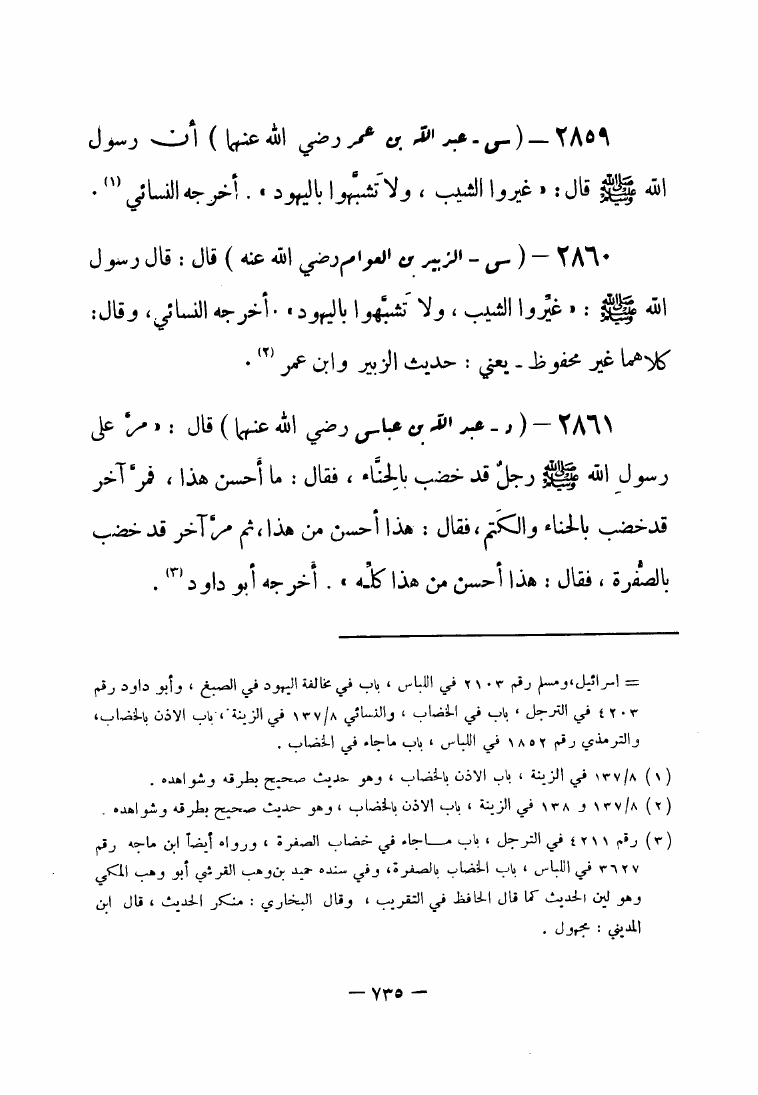 ٢٨٥٩ – ( س - عبد الله بن عمر رضي الله عنهما ) أن رسول
الله ﷺ قال : « غيروا الشيب ، ولا تَشَبَّهوا باليهود » . أخرجه النسائي (١) .
٢٨٦٠ – ( س - الزبير بن العوام رضي الله عنه ) قال : قال رسول
الله ﷺ : « غيِّروا الشيب ، ولا تَشبَّهوا باليهود » . أخرجه النسائي ، وقال :
كلاهما غير محفوظ - يعني : حديث الزبير وابن عمر (٢) .
٢٨٦١ – ( د - عبد الله بن عباس رضي الله عنهما ) قال : « مرَّ على
رسولِ الله ﷺ رجلٌ قد خضب بالحِنَّاء ، فقال : ما أَحسن هذا ، فمرَّ آخر
قد خضب بالحناء والكَتَم ، فقال : هذا أحسن من هذا ، ثم مرَّ آخر قد خضب
بالصُّفرة ، فقال : هذا أحسن من هذا كلِّه » . أخرجه أبو داود (٣) .
= اسرائيل ، ومسلم رقم ٢١٠٣ في اللباس ، باب في مخالفة اليهود في الصبغ ، وأبو داود رقم
٤٢٠٣ في الترجل ، باب في الخضاب ، والنسائي ١٣٧/٨ في الزينة ، باب الاذن بالخضاب ،
والترمذي رقم ١٨٥٢ في اللباس ، باب ماجاء في الخضاب .
(١) ١٣٧/٨ في الزينة ، باب الاذن بالخضاب ، وهو حديث صحيح بطرقه وشواهده .
(٢) ١٣٧/٨ و ١٣٨ في الزينة ، باب الاذن بالخضاب ، وهو حديث صحيح بطرقه وشواهده .
(٣) رقم ٤٢١١ في الترجل ، باب ماجاء في خضاب الصفرة ، ورواه أيضاً ابن ماجه رقم
٣٦٢٧ في اللباس ، باب الخضاب بالصفرة ، وفي سنده حميد بن وهب القرشي أبو وهب المكي
وهو لين الحديث كما قال الحافظ في التقريب ، وقال البخاري : منكر الحديث ، قال ابن
المديني : مجهول .
– ٧٣٥ –